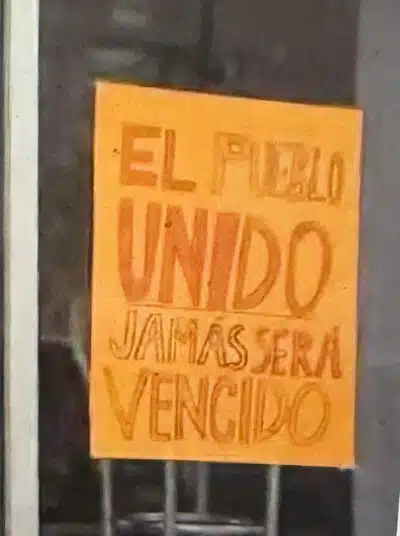 EL PUEBLO
UNIDO
JAMÁS SERÁ
VENCIDO